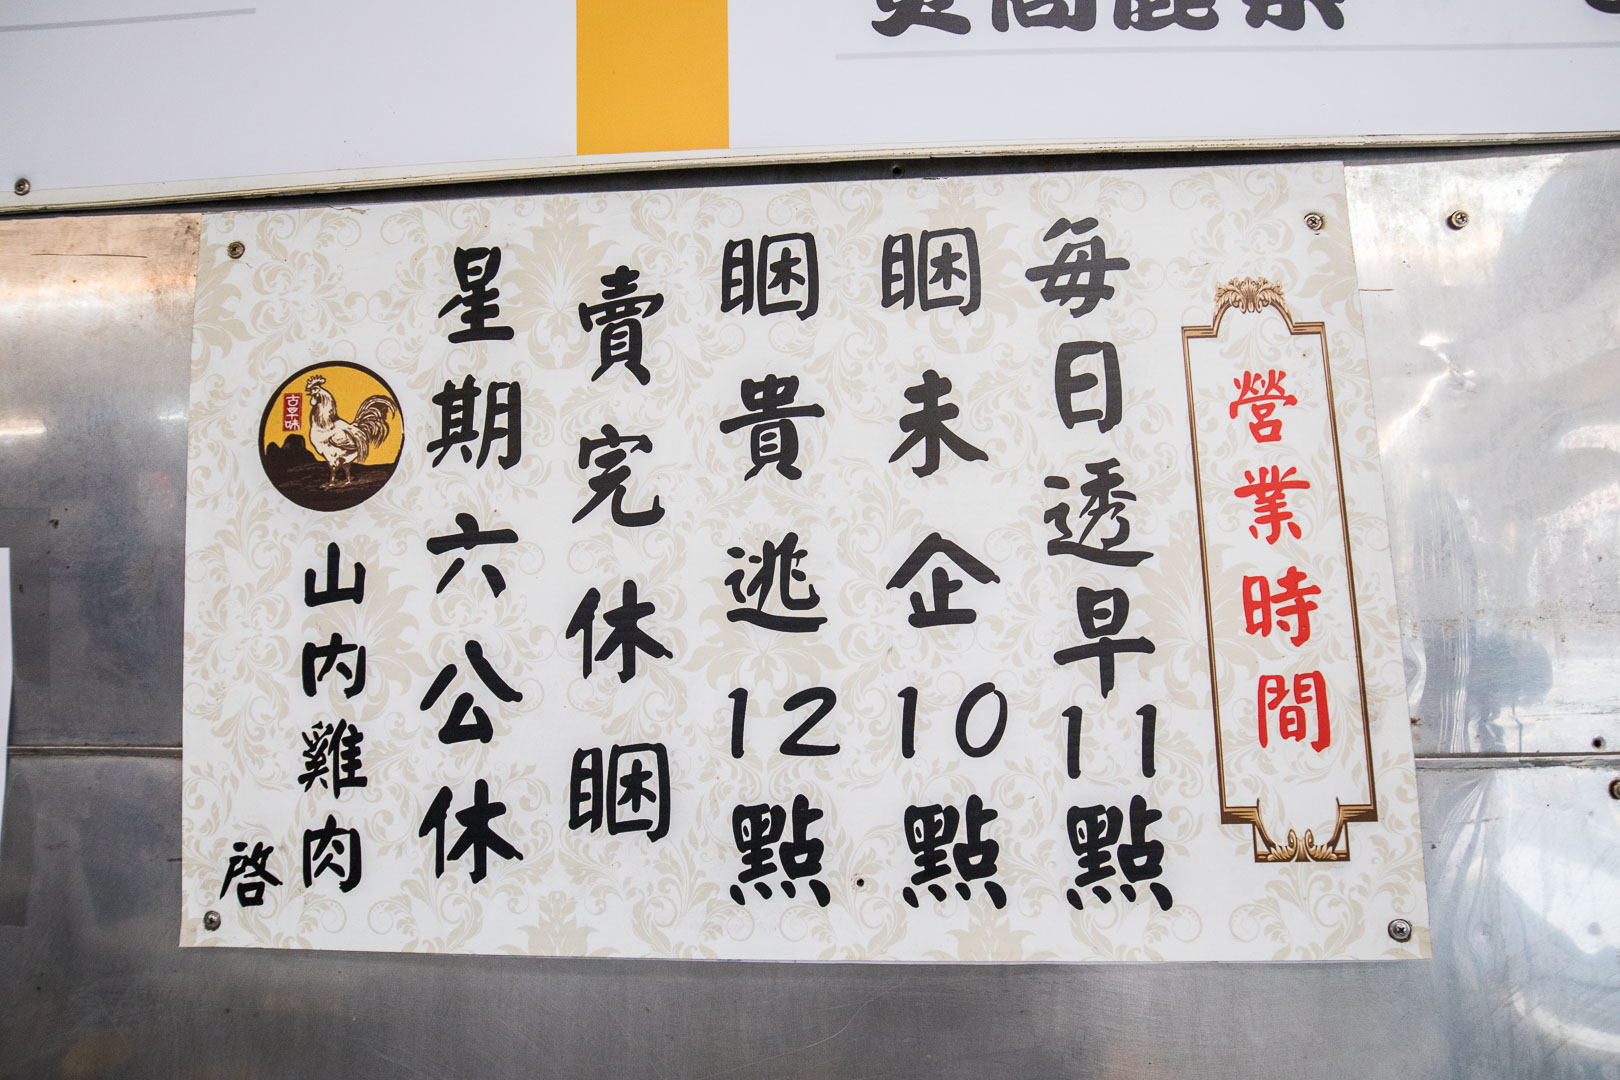 營業時間
每日透早11點
睏未企10點
睏貴逃12點
賣完休睏
星期六公休
古早味
山內雞肉
啓